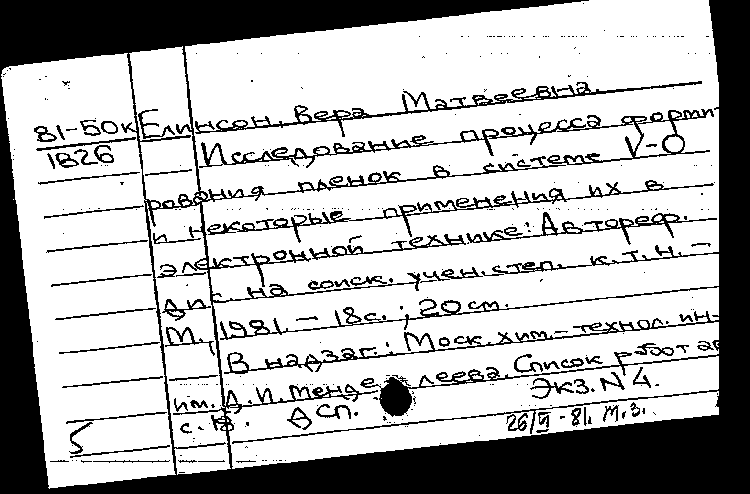 81-50к Елинсон, Вера Матвеевна.
1826 Исследование процесса форми-
рования пленок в системе V-O
и некоторые применения их в
электронной технике: Автореф.
дис. на соиск. учен. степ. к.т.н. -
М., 1981. - 18с. ; 20см.
В надзаг.: Моск. хим.-технол. ин-
им. Д.И. Менделеева. Список работ
с. ДСП. Экз. N4.
5 81. М.З.